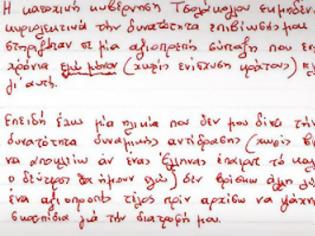 Η κατοχική κυβέρνηση Τσολάκογλου εκμηδέν
κυριολεκτικά την δυνατότητα επιβίωσής μου
στηριζόταν σε μία αξιοπρεπή σύνταξη που επί
χρόνια εγώ μόνον (χωρίς ενίσχυση κράτους) π
γι αυτή.
Επειδή έχω μία ηλικία που δεν μου δίνει τήν
δυνατότητα δυναμικής αντίδρασης (χωρίς β
να αποκλείω άν ένας Έλληνας έπαιρνε το καλ
ο δεύτερος θα ήμουν εγώ) δεν βρίσκω άλλη λύ
ένα αξιοπρεπές τέλος πρίν αρχίσω να ψάχν
σκουπίδια γιά την διατροφή μου.